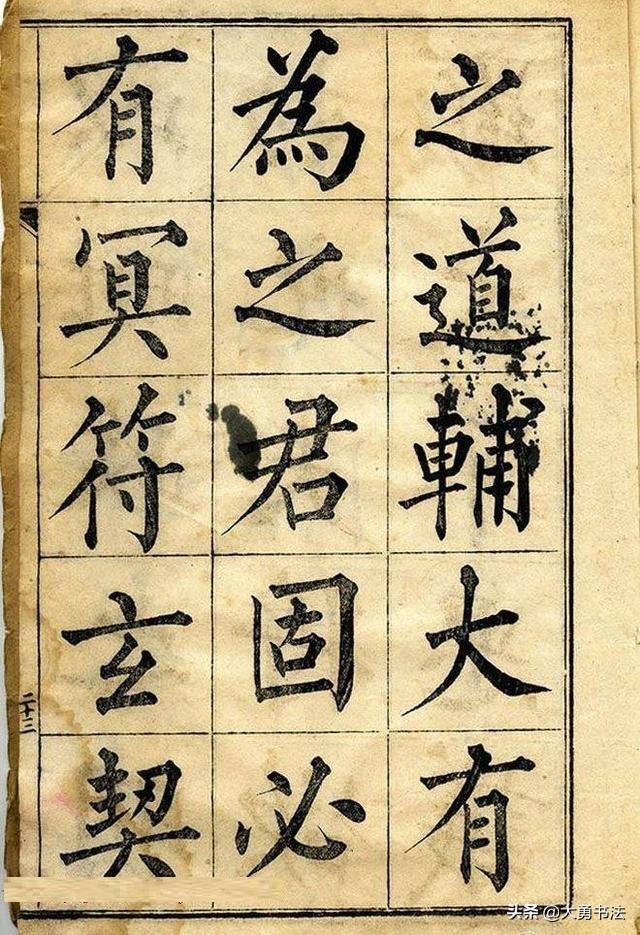 之道輔大有
為之君固必
有冥符玄契
二十三
头条 @大勇书法